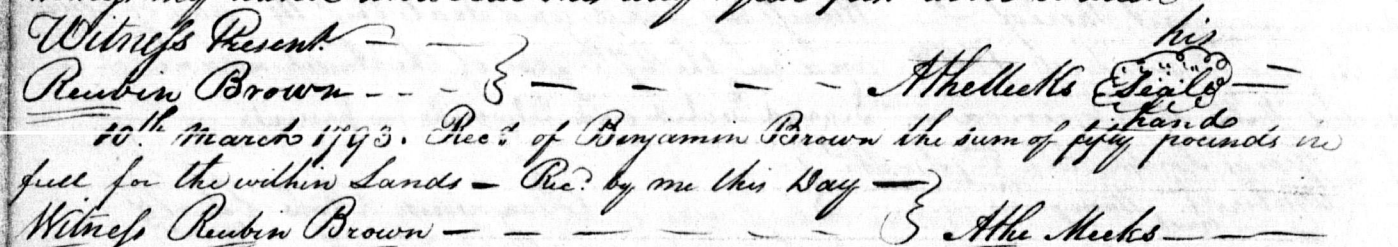 Witness Present
his
Reubin Brown - - - } - - - - Athe Meeks Seal
hand
10th March 1793. Recd of Benjamin Brown the sum of fifty pounds in
full for the within Lands - Recd by me this Day -
Witness Reubin Brown - - - - - - } Athe Meeks - - -